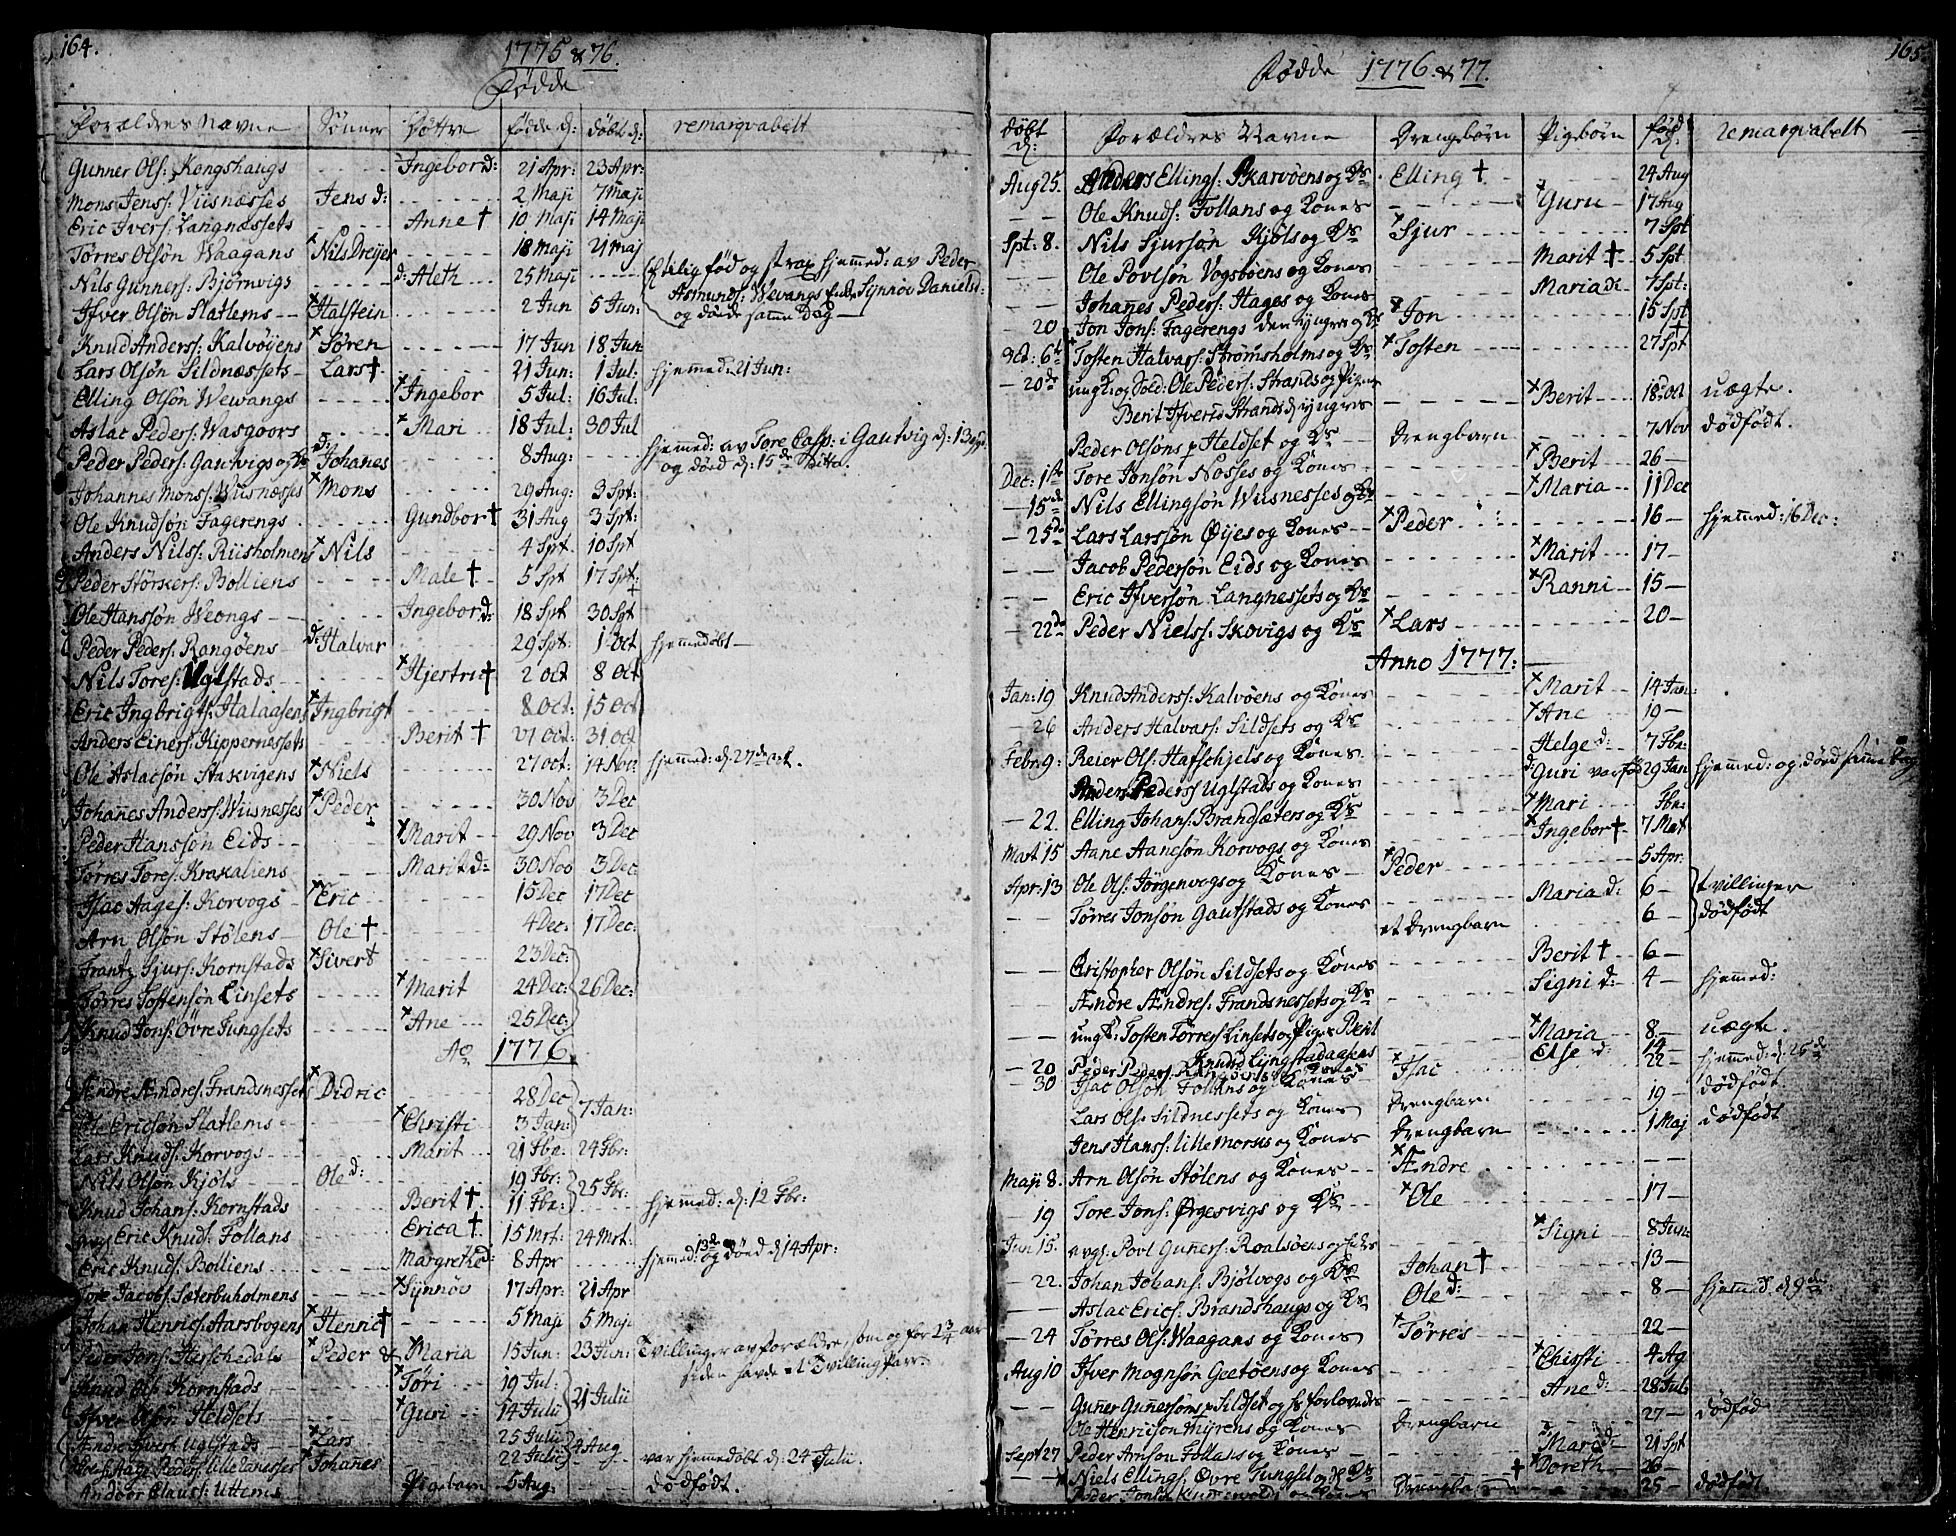 164.
1775 & 76.
Fødde
Forældres Navne Sønner Døttre fødde d: døbt d: remarqvabelt
Gunner Ols: Kongshaugs Ingebor d: 21 Apr: 23 Apr:
Mons Jens: Viisnæsses Jens d: 2 Maji 7 Maji
Eric Ivers: Langnæssets Anne † 10 Maji 14 Maji
Tørres Olsøn Waagans Nils Dreyer 18 Maji 21 Maj
Nils Gunners: Bjørnvigs d: Aleth 25 Maji tilig fød og strax hjemmed: av Peder
Ifver Olsøn Slatlems Halstein 2 Jun 5 Jun: Asmunds: Wevangs Synnøv Daniels:
og døde samme Dag
Knud Anders: Kalvøyens Søren 17 Jun 18 Jun
Lars Olsøn Sildnæssets Lars † 21 Jun: 1 Jul: hjemmed: 21 Jun:
Elling Olsøn Wewangs Ingebor 5 Jul: 16 Jul:
Aslac Peders: Wasgoors Mari 18 Jul: 30 Jul
Peder Peders: Gautvigs og K: d: Johanes 8 Aug: hjemmed: av Tore Casp: i Gautvig d: 13
og døed d: 15de Ditto.
Johannes Mons: Wiisnæsses Mons 29 Aug: 3 Spt:
Ole Knudsøn Fagerengs Gundbor † 31 Aug 3 Spt:
Anders Nils: Riisholmens Nils 4 Spt 10 Spt
Peder Størkers: Bolliens Male † 5 Spt 17 Spt
Ole Hanssøn Weongs Ingebor d: 18 Spt 30 Spt
Peder Peders: Rangøens d: Halvar 29 Spt: 1 Oct hjemmedøbt
Nils Tores: Uglstads Hjertru † 2 Oct 8 Oct
Eric Ingbrigts: Halaasens Ingbrigt 8 Oct: 15 Oct
Anders Einers: Kippernessets Berit † 21 Oct: 31 Oct
Ole Aslacsøn Staxvigens Niels 27 Oct: 14 Nov: hjemmed: d: 27de Oct.
Johannes Anders: Wiisnesses Peder 30 Nov 3 Dec
Peder Hanssøn Eids Marit 29 Nov 3 Dec
Tørres Tores: Kraxaliens Marit d: 30 Nov 3 Dec
Isac Aages: Korvogs Eric 15 Dec 17 Dec
Arn Olsøn Stølens Ole † 4 Dec: 17 Dec:
Frantz Sjurs: Kornstads Sivert 23 Dec:
Tørres Tostensøn Linsets Marit 24 Dec: 26 Dec:
Knud Jons: Øvre Fungsets Ane 25 Dec:
Ao 1776.
Ændre Ændres: Frandsnesset Didric 28 Dec
Ole Ericsøn Slatlems Christi 3 Jan: 7 Jan:
Lars Knuds: Korvogs Marit 21 Fbr: 24 Fbr:
Nils Olsøn Kjøls Ole d: 19 Fbr:
Knud Johans: Kornstads Berit † 11 Fbr: 25 Fbr: hjemmed: d: 12 Fbr:
Eric Knuds: Follans Erica † 15 Mrt: 24 Mrt:
Eric Knuds: Bolliens Margrethe d: 8 Apr hjemmed: 13de og døed d 14 Apr:
Tore Jacobs: Sæterbuholmens Synnøv 17 Apr: 21 Apr
Johan Henrics: Aarsbogens Henric † 5 Maji 5 Maji
Peder Jons: Herschedals Peder & Maria 15 Jun: 23 Jun: Tvillinger av forældre, som og for 1 3/4 aar
siden havde et Tvillingparr.
Knud Ols: Kornstads Tori 19 Jul:
Ifver Olsøn Heldsets Guri 14 Julii 21 Julii
Ændre Ivers: Uglstads Lars 25 Julii
Aage Peders: lille Wanesses Johanes 22 Julii 4 Aug var hjemmedøbt d: 24 Julii.
Andoor Claus: Uttems Pigebarn 5 Aug: dødfødt.
165.
Fødde 1776 & 77.
døbt d: Forældres Navne Drengbørn Pigbørn fød d: remarqvabelt
Aug 25. Anders Ellings: Skarvøens og K: Elling † 24 Aug
Ole Knuds: Follans og Kones Guru 17 Aug
Spt: 8. Nils Sjursøn Kjøls og K: Sjur 7 Spt
Ole Povlsøn Vogsbøens og Kones Marit † 5 Spt
Johanes Peders: Hages og Kones Maria d: 7 Spt:
20 Jon Jons: Fagerengs den yngres og K: Jon 15 Spt
Oct: 6te Tosten Halvars: Strømsholms og K: Tosten 27 Spt
20de ungk: og Sold: Ole Peders: Strands og Pigens
Berit Ifvers: Strands d: yngres Berit 18 Oct uægte.
Peder Olsøns Heldset og K: Drengbarn 7 Nov dødfødt.
Dec: 1ste Tore Jonsøn Nosses og Kones Berit 26
15de Nils Ellingsøn Wiisnesses og K: Maria 11 Dec
25de Lars Larssøn Øyes og Kones Peder 16 hjemmed: 16 Dec:
Jacob Pedersøn Eids og Kones Marit 17
Eric Ifversøn Langnessets og K: Ranni 15
22de Peder Niels: Skovigs og K: Lars 20
Anno 1777:
Jan: 19 Knud Anders: Kalvøens og Kones Marit 14 Jan:
26 Anders Halvars: Sildsets og K: Ane 19
Febr: 9: Reier Ols: Hafschjels og Kones Helge d: 7 Fbr:
Anders Peders: Uglstads og Kones d: Guri var fød 29 Jan hjemmed: og død samme Dag
22. Elling Johans: Brandsæters og K: Mari Fbr:
Mart 15 Aane Aanesøn Korvogs og Kones Ingebor † 7 Mat
Apr: 13 Ole Ols: Jørgenvogs og Kones Peder 5 Apr:
Tørres Jonsøn Gautstads og Kones Maria d: 6 tvillinger
et Drengbarn 6 dødfødt
Christopher Olsøn Sildsets og Kones Berit † 6
Ændre Ændres: Frandsnessets og K: Signi d: 4 hjemmed:
ungk: Tosten Tørres: Linsets og Piges Berit
Knuds: Lyngstadaasens Maria 8 uægte.
20 Peder Peders: Rangøens og Kones Else d: 14 hjemmed: d: 26de
30 Isac Olsøn Follans og Kones Isac 22
Lars Ols: Sildnessets og Kones Drengbarn 19 dødfødt
Jens Hans: lille Morsus og Kones Drengbarn 1 Maj dødfødt
Maji 8. Arn Olsøn Stølens og Kones Ændre
19 Tore Jons: Ørgesvigs og K: Ole 17
Jun 15. Povl Guners: Roalsøens og Signi 8 Jun:
22. Johan Johans: Bjølvogs og K: Johan † 13
Aslac Erics: Brandshaugs og K: Ole d: 8 hjemmed d 9de
24 Tørres Ols: Waagans og Kones Tørres 22
Aug 10 Ifver Mognsøn Geetøens og Kones Christi 4 Ag
Guner Gunersøns Sildset og forlovedes Ane d: 28 Jul:
Ole Henricsøn Myrens og Kones Drengbarn 27 dødfød
Sept 27 Peder Arnsøn Follans og Kones Mari d: 21 Spt
Niels Ellings: Øvre Fungsel og K: Doreth
Peder Jons: og Kones Drengbarn 25 dødfødt